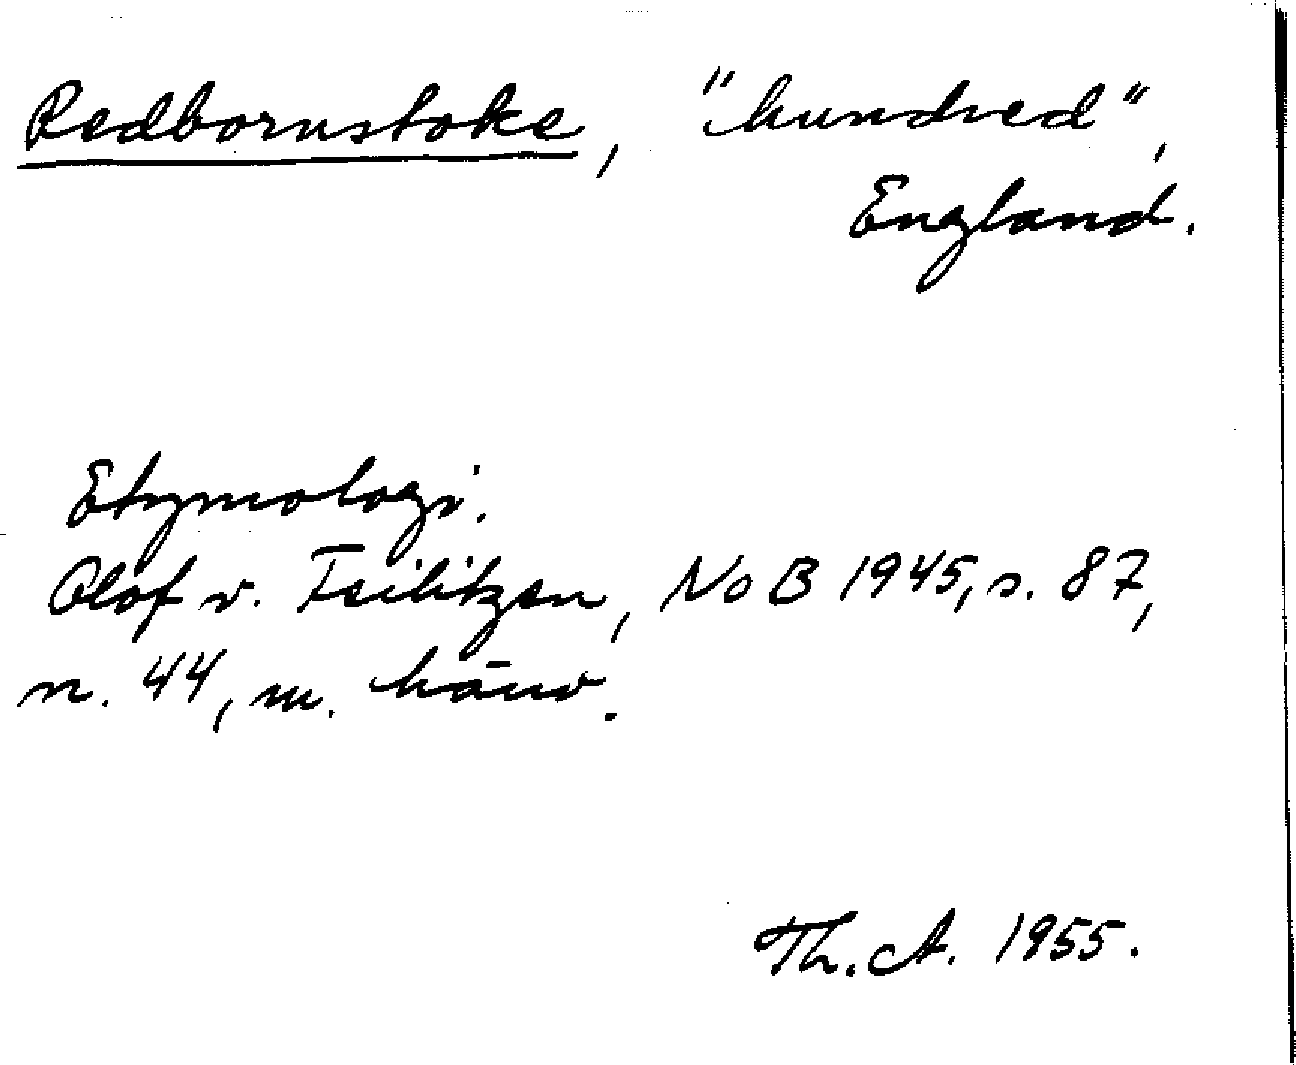 Redbornstoke, "hundred",
England.
Etymologi.
Olof v. Feilitzen, NoB 1945, s. 87,
n. 44, m. hänv.
Th. A. 1955.